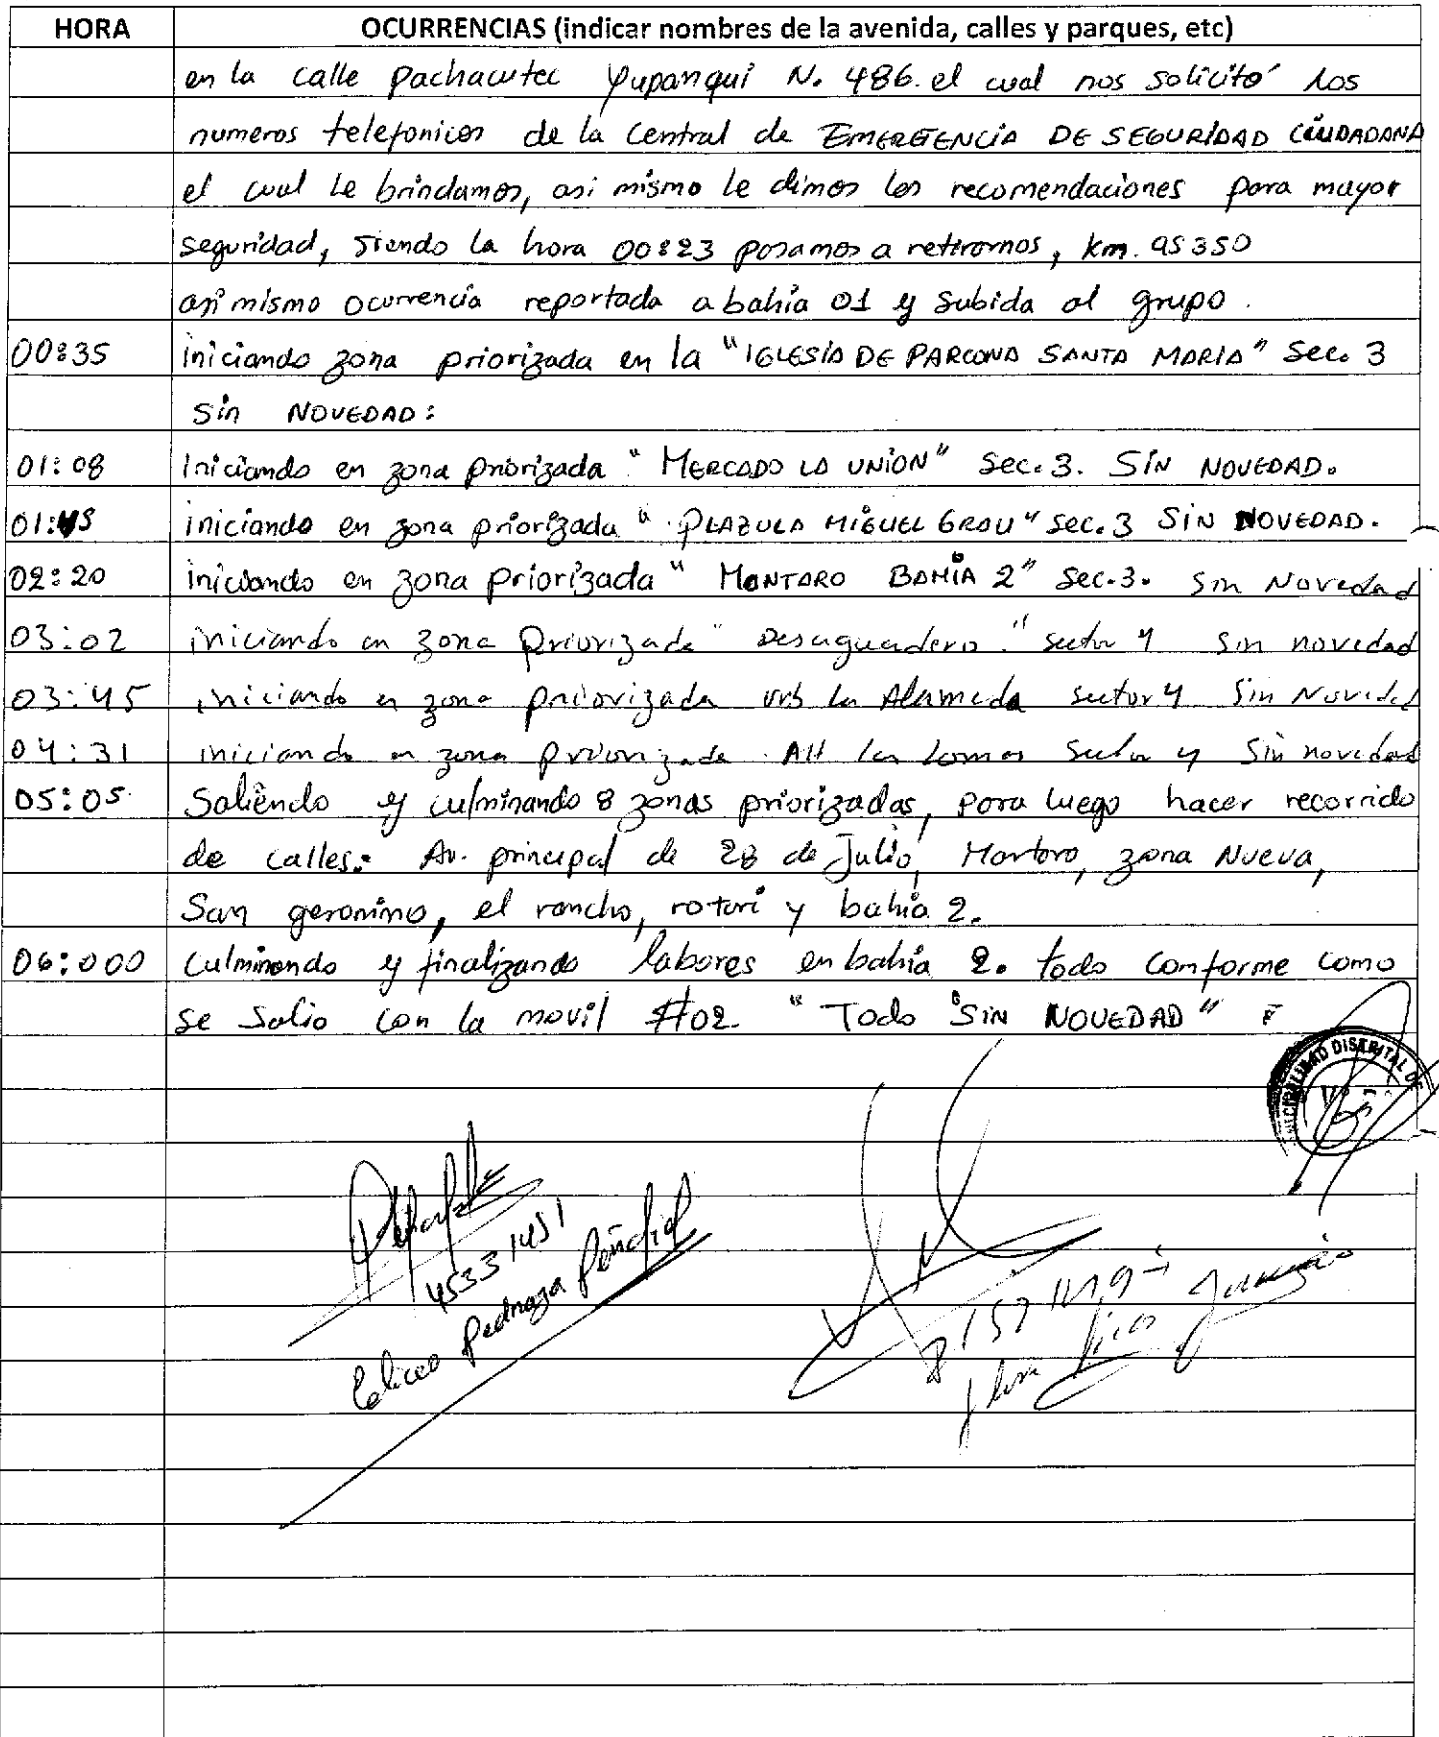 HORA OCURRENCIAS (indicar nombres de la avenida, calles y parques, etc)
en la calle pachacutec yupanqui N. 486. el cual nos solicitó los
numeros telefonicos de la Central de EMERGENCIA DE SEGURIDAD CIUDADANA
el cual le brindamos, asi mismo le dimos las recomendaciones para mayor
seguridad, siendo la hora 00:23 pasamos a retirarnos, km. 95350
asi mismo ocurrencia reportada a bahia 01 y subida al grupo.
00:35 iniciando zona priorizada en la "IGLESIA DE PARCONA SANTA MARIA" Sec. 3
Sin NOVEDAD:
01:08 iniciando en zona priorizada "MERCADO LA UNION" Sec. 3. SIN NOVEDAD.
01:45 iniciando en zona priorizada "PLAZULA MIGUEL GRAU" sec. 3 SIN NOVEDAD.
02:20 iniciando en zona priorizada "MANTARO BAHIA 2" Sec. 3. Sin Novedad
03:02 iniciando en zona priorizada "Desaguadero" sector 4 Sin novedad
03:45 iniciando en zona priorizada urb la Alameda sector 4 Sin Novedad
04:31 iniciando en zona priorizada AH las Lomas Sector 4 Sin novedad
05:05 Saliendo y culminando 8 zonas priorizadas, para luego hacer recorrido
de calles: Av. principal de 28 de Julio, Mantaro, zona Nueva,
San geronimo, el rancho, rotari y bahia 2.
06:000 Culminando y finalizando labores en bahia 2. todo conforme como
se salio con la movil #02 "Todo SIN NOVEDAD"
DISTRITAL DE
45331451
Pedraza Peñafiel